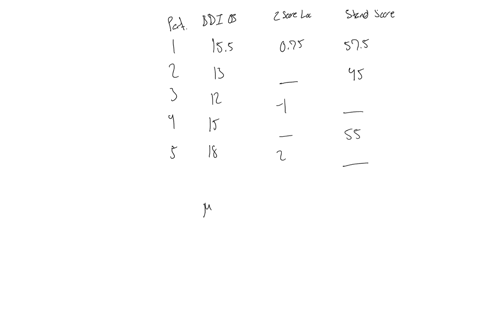 Part. BDI OS Z Score Loc Stand Score
1 15.5 0.75 57.5
2 13 __ 45
3 12 -1 __
4 15 __ 55
5 18 2 __
μ